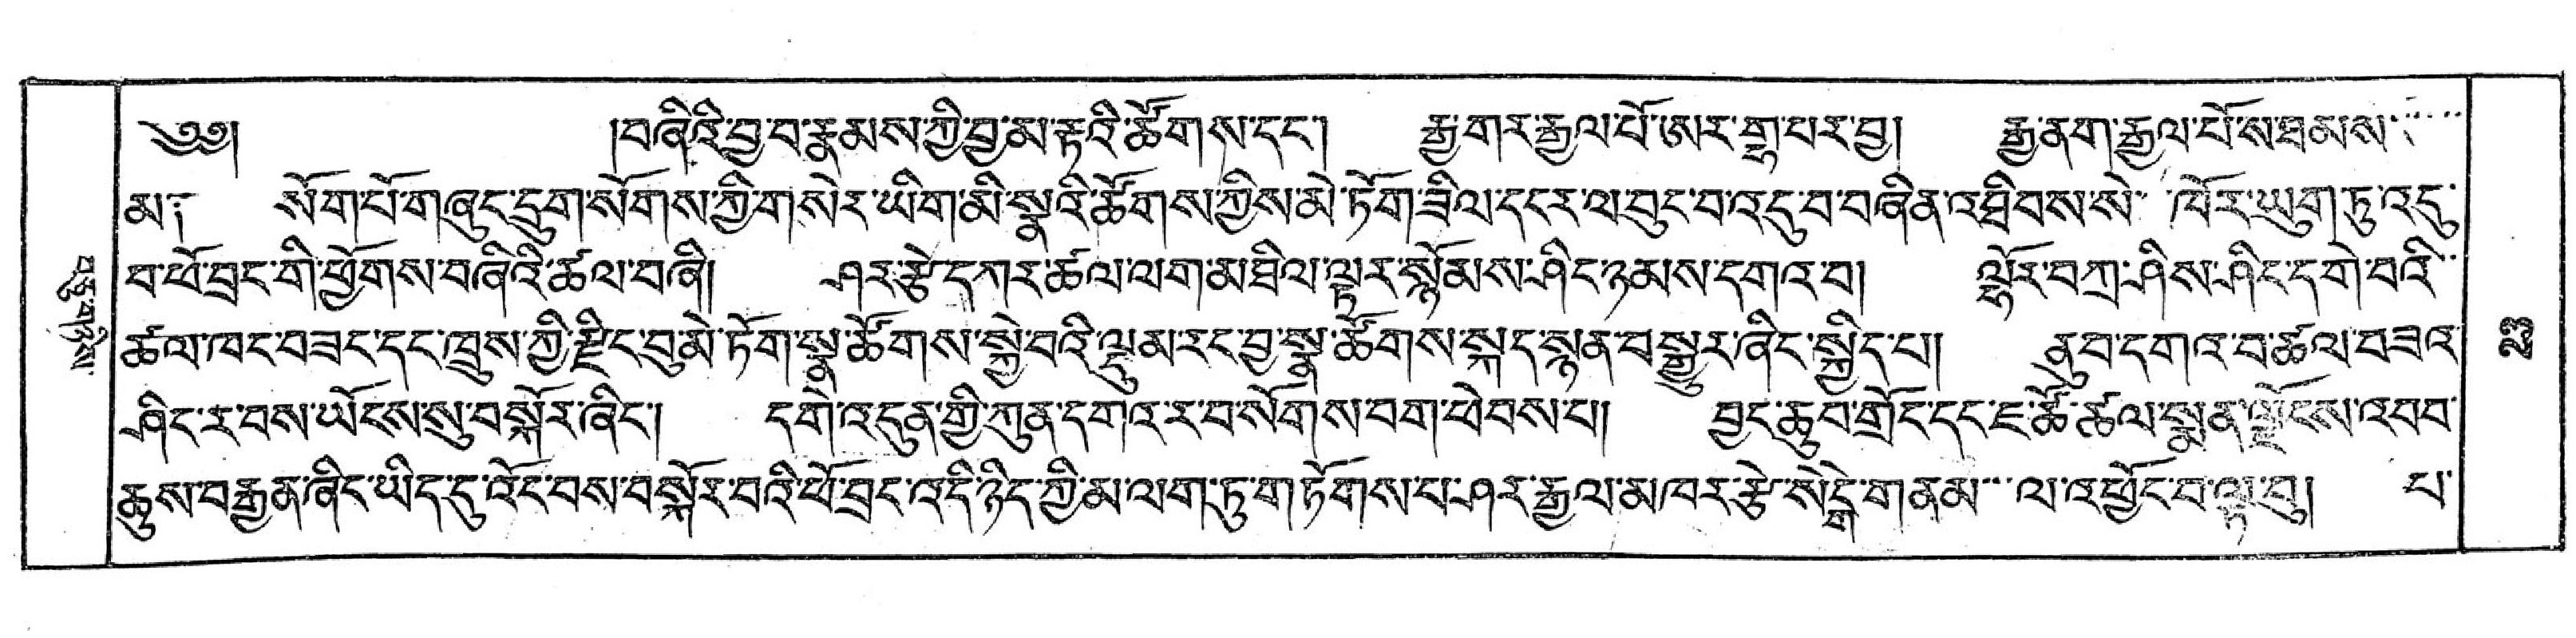 ༄༅། །བཞིའི་བྱ་བ་རྣམས་ཀྱི་བྱ་མ་རྟའི་ཚོགས་དང་། རྒྱ་གར་རྒྱལ་པོ་ཨར་གྷ་པར་བྱ། རྒྱ་ནག་རྒྱལ་པོ་ས་ཐམས་
མ༑ སོག་པོ་གཞུང་དྲུག་སོགས་ཀྱི་གསེར་ཡིག་མི་སྣའི་ཚོགས་ཀྱིས་མེ་ཏོག་ཟིལ་དངར་ལ་བུང་བ་འདུ་བ་བཞིན་འཐིབས་སེ་ ཁོར་ཡུག་ཏུ་འདུ་
བ་ཕོ་བྲང་གི་ཕྱོགས་བཞིའི་ཚལ་བཞི། ཤར་རྩེ་དཀར་ཚལ་ལག་མཐིལ་ལྟར་སྙོམས་ཤིང་ཉམས་དགའ་བ། ལྷོར་བཀྲ་ཤིས་ཤིང་དགེ་བའི་
ཚལ་ཁང་བཟང་དང་ཁྲུས་ཀྱི་རྫིང་བུ་མེ་ཏོག་སྣ་ཚོགས་སྐྱེ་བའི་ལྡུམ་ར་དང་བྱ་སྣ་ཚོགས་སྐད་སྙན་བསྒྱུར་ཞིང་སྐྱིད་པ། ནུབ་དགའ་བ་ཚལ་བཟའ་
ཤིང་ར་བས་ཡོངས་སུ་བསྐོར་ཞིང་། དགེ་འདུན་གྱི་ཀུན་དགའ་ར་བ་སོགས་བག་ཕེབས་པ། བྱང་ཆུབ་གྲོང་དང་ཇ་ཚོ་ཚལ་སྨན་ལྗོངས་འབབ་
ཆུས་བརྒྱན་ཞིང་ཡིད་དུ་འོང་བས་བསྐོར་བའི་ཕོ་བྲང་འདི་ཉིད་ཀྱི་མ་ལག་ཏུ་གཏོགས་པ་ཤར་རྒྱལ་མཁར་རྩེ་སེང་གེ་གནམ་ ལ་འཕྱོང་བ་ལྟ་བུ། པ་